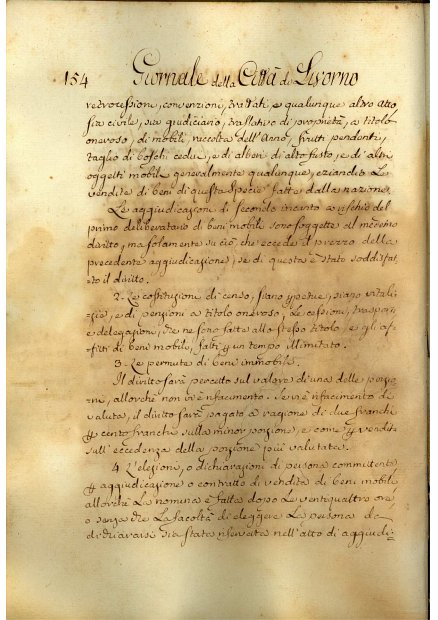 154 Giornale della Città di Livorno
retrocessione, convenzioni, trattati, e qualunque altro atto
sia civile, sia giudiciario, traslativo di proprietà, a titolo
oneroso, di mobili, raccolta dell'Anno, frutti pendenti,
taglio di boschi cedui, e di alberi di alto fusto, e di altri
oggetti mobili generalmente qualunque, eziandio le
vendite di beni di questa specie fatte dalla nazione.
Le aggiudicazioni di secondo incanto a rischio del
primo deliberatario di beni mobili sono soggette al medesimo
diritto, ma solamente su ciò, che eccede il prezzo della
precedente aggiudicazione, se di questa è stato soddisfat-
to il diritto.
2. Le costituzioni di censo, siano ppetue, siano vitali-
zie, e di penzioni a titolo oneroso, le cessioni, trasporti
e delegazioni, che ne sono fatte allo stesso titolo, e gli af-
fitti di beni mobili, fatti p un tempo illimitato.
3. Le permute di beni immobili.
Il diritto sarà percetto sul valore di una delle porzio-
ni, allorchè non vi è rifacimento. Se vi è rifacimento di
valuta, il diritto sarà pagato a ragione di due franchi
p cento franchi sulla minor porzione, e come p vendita
sull'eccedenza della porzione più valutata.
4. L'elezioni, o dichiarazioni di persona committente
p aggiudicazione o contratto di vendita di beni mobili
allorchè la nomina è fatta dopo le ventiquattro ore
o senza che la facoltà di eleggere la persona da
dichiararsi sia stata riservata nell'atto di aggiudi-